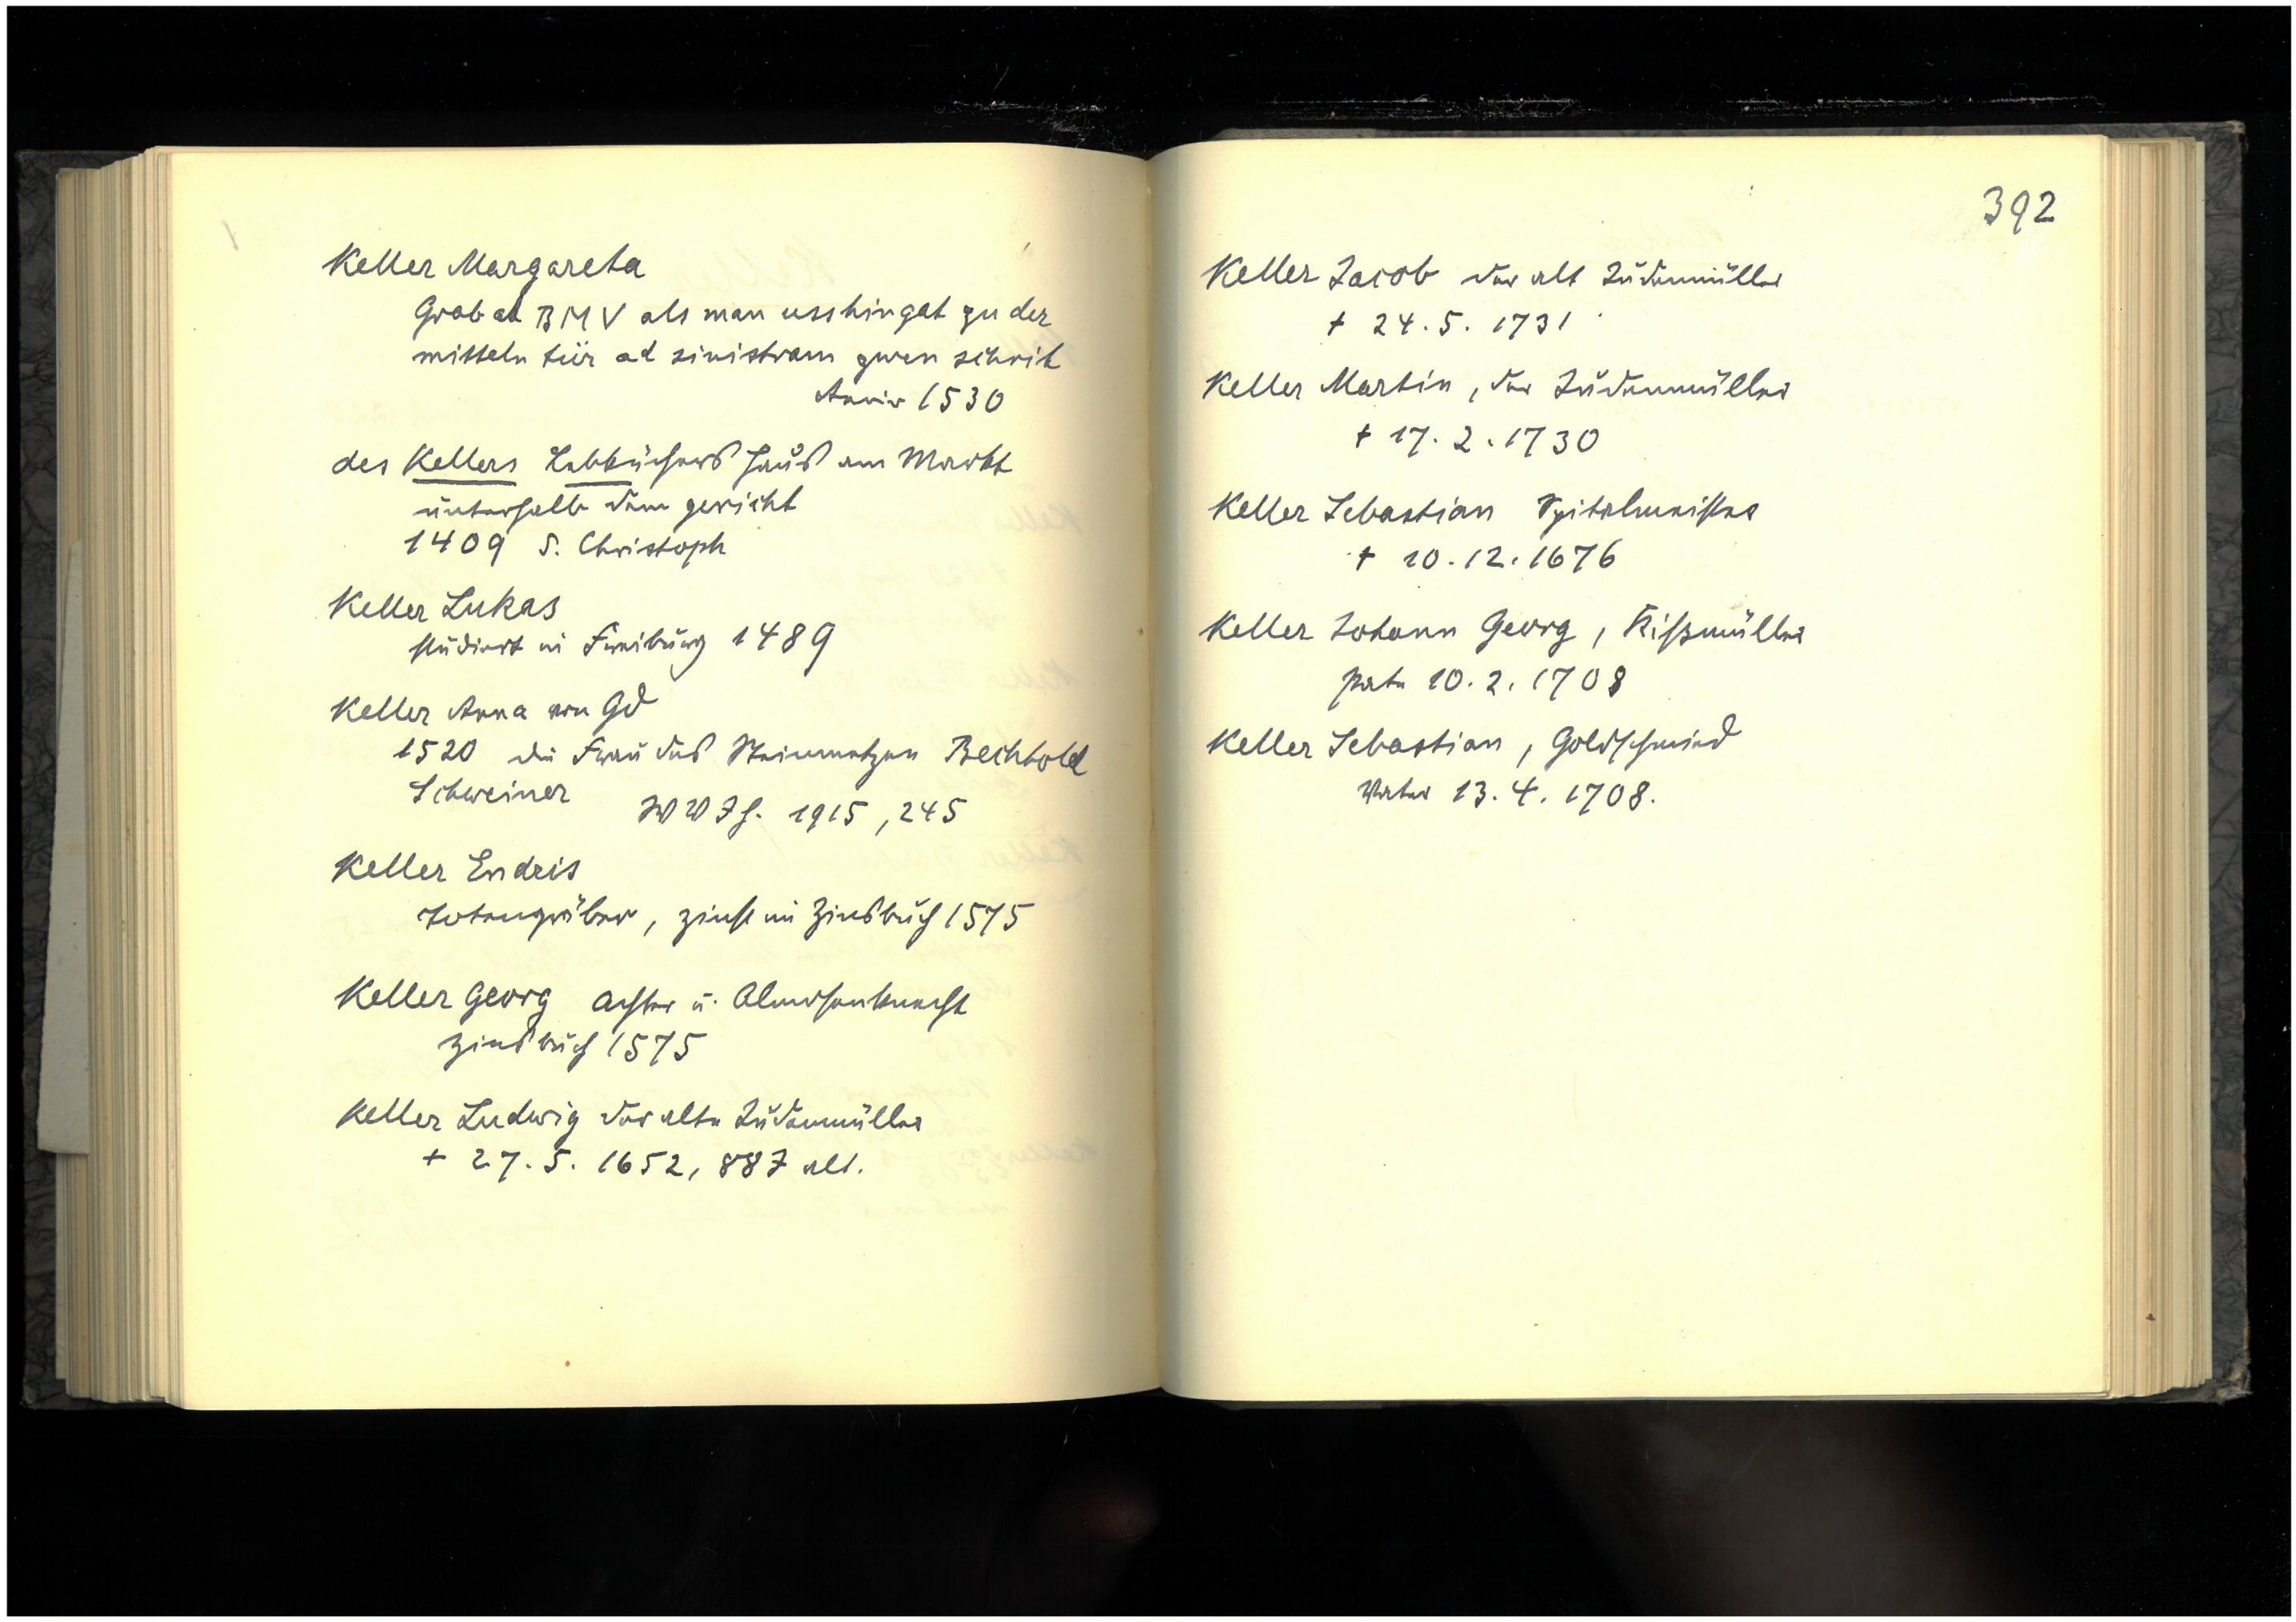 Keller Margareta
Grab ad BMV als man usshin gat zu der
mitteln tür ad sinistram zwen schrit
Anniv 1530
des Kellers Lebküchers Haus am Markt
unterhalb dem gericht
1409 S. Christoph
Keller Lukas
studiert in Freiburg 1489
Keller Anna von Gd
1520 die Frau des Steinmetzen Bechtold
Schweiner
W W J H. 1915, 245
Keller Endris
Totengräber, zinst im Zinsbuch 1575
Keller Georg Achter u. Almosenknecht
Zinsbuch 1575
Keller Ludwig der alte Judenmüller
+ 27. 5. 1652, 88 J alt.
392
Keller Jacob der alt Judenmüller
+ 24. 5. 1731
Keller Martin, der Judenmüller
+ 17. 2. 1730
Keller Sebastian Spitalmeister
+ 10. 12. 1676
Keller Johann Georg, Rißmüller
Pate 10. 2. 1708
Keller Sebastian, Goldschmied
Vater 13. 4. 1708.